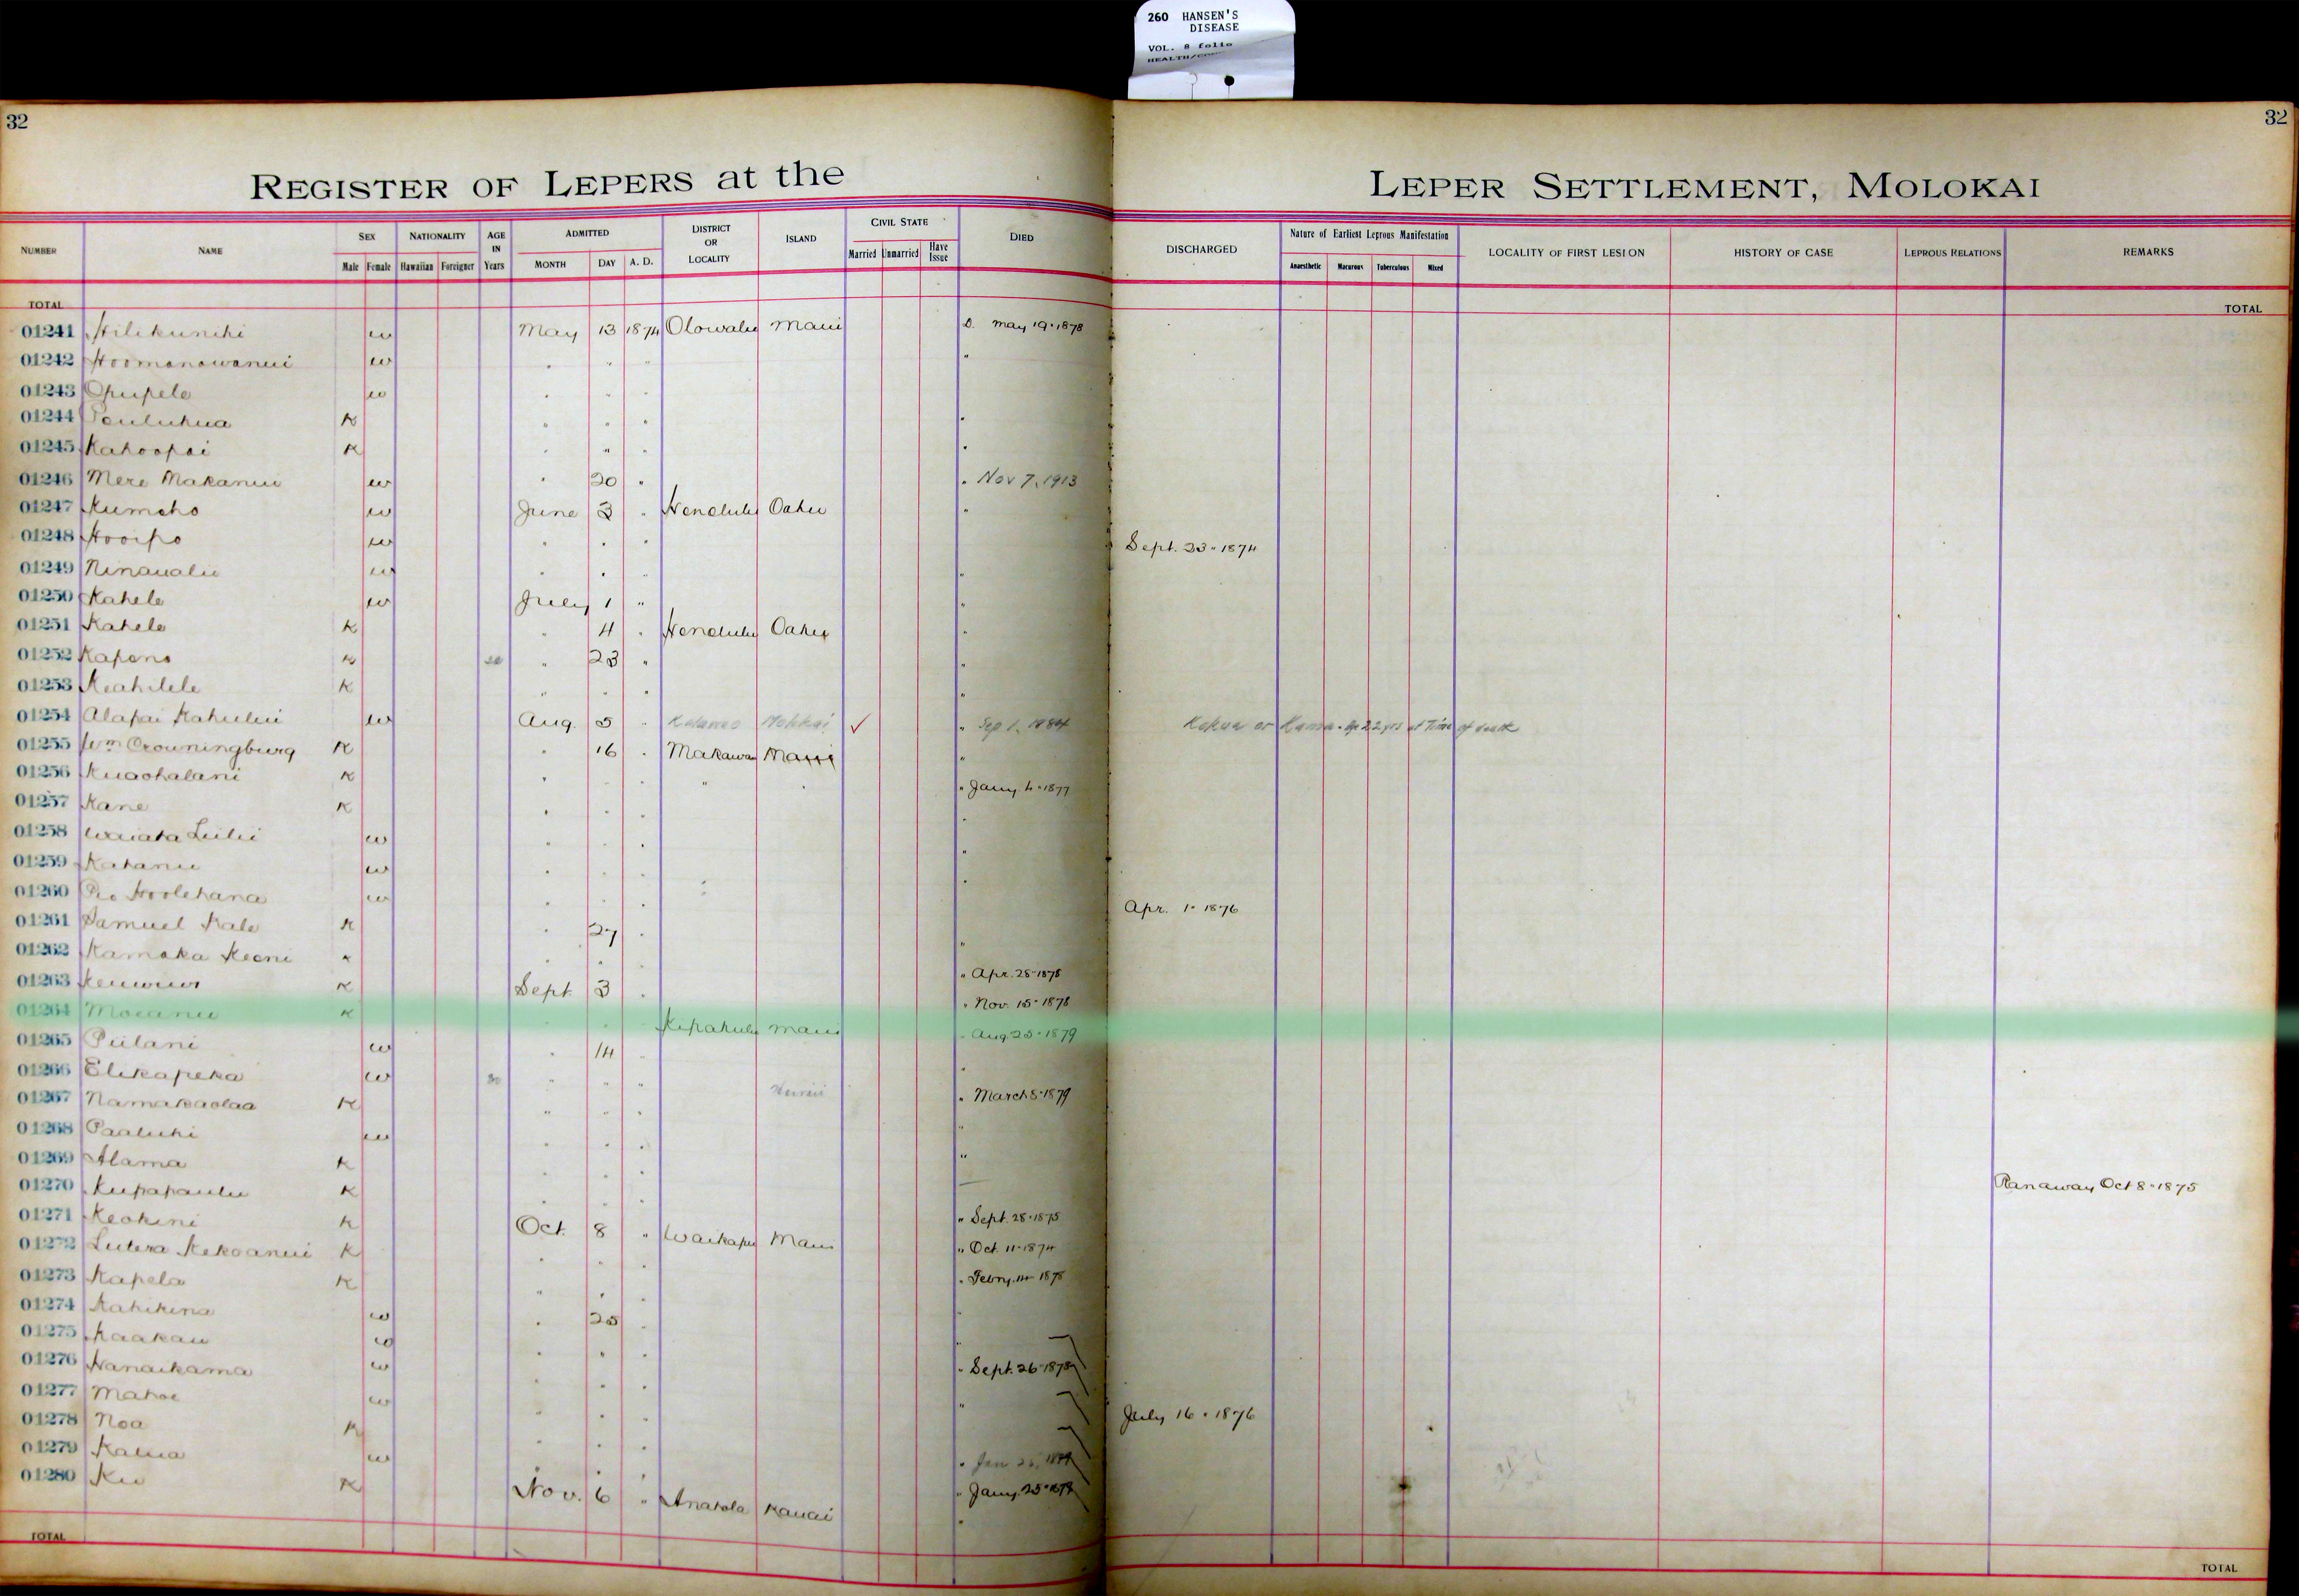 260 HANSEN'S
DISEASE
VOL. 8 folio
32
32
REGISTER OF LEPERS at the LEPER SETTLEMENT, MOLOKAI
NUMBER NAME SEX Male Female NATIONALITY Hawaiian Foreigner AGE IN Years ADMITTED MONTH DAY A. D. DISTRICT OR LOCALITY ISLAND CIVIL STATE Married Unmarried Have Issue DIED DISCHARGED Nature of Earliest Leprous Manifestation Anaesthetic Macurous Tuberculous Mixed LOCALITY OF FIRST LESION HISTORY OF CASE LEPROUS RELATIONS REMARKS
TOTAL TOTAL
01241 w May 13 1874 Olowalu Maui D. May 19 1878
01242 Hoomanawanui w " " " "
01243 Opupele w " " "
01244 K " " " "
01245 Kahoopai K " " " "
01246 Mere Makanui w " 20 " " Nov 7, 1913
01247 w June 3 " Honolulu Oahu "
01248 Hooipo w " " " Sept. 23 1874
01249 Ninaualu w " " " "
01250 Kahele w July 1 " "
01251 Kahele K " 4 " Honolulu Oahu "
01252 Kapono K " 23 " "
01253 Keahilele K " " " "
01254 Alapai Kahului w Aug. 5 " Molokai ✓ " Sep 1, 1884 Kokua or Kama. 22 yrs at Time of death
01255 Wm Crowningburg K " 16 " Makawao Maui "
01256 Kuaohalani K " " " " " " Jany 4 1877
01257 Kane K " " " "
01258 Waiaka Luilii w " " " "
01259 w " " " "
01260 Hoolehana w " " " Apr. 1 1876
01261 Samuel Kale K " 27 " "
01262 Kamaka Keoni K " " " Apr. 28 1878
01263 K Sept. 3 " " Nov. 15 1878
01264 K " " " Kipahulu Maui " Aug 25 1879
01265 Piilani w " 14 " "
01266 Elikapeka w " " " Hawaii " March 8 1879
01267 Namakaolaa K " " " "
01268 Paaluhi w " " " "
01269 Alama K " " "
01270 Kupapaulu K " " " " Sept. 28 1875 Ranaway Oct 8 1875
01271 Keokini K Oct. 8 " Waikapu Maui " Oct. 11 1874
01272 Lutera Kekoanui K " " " " Febry. 14 1878
01273 Kapela K " " " "
01274 Kahikina w " 25 " "
01275 Kaakau w " " " " Sept. 26 1878
01276 Nanaikama w " " " "
01277 Mahoe w " " " July 16 1876
01278 Noa K " " "
01279 Kalua w " " " Jany. 25
01280 Ku K Nov. 6 " Anahola Kauai "
TOTAL TOTAL